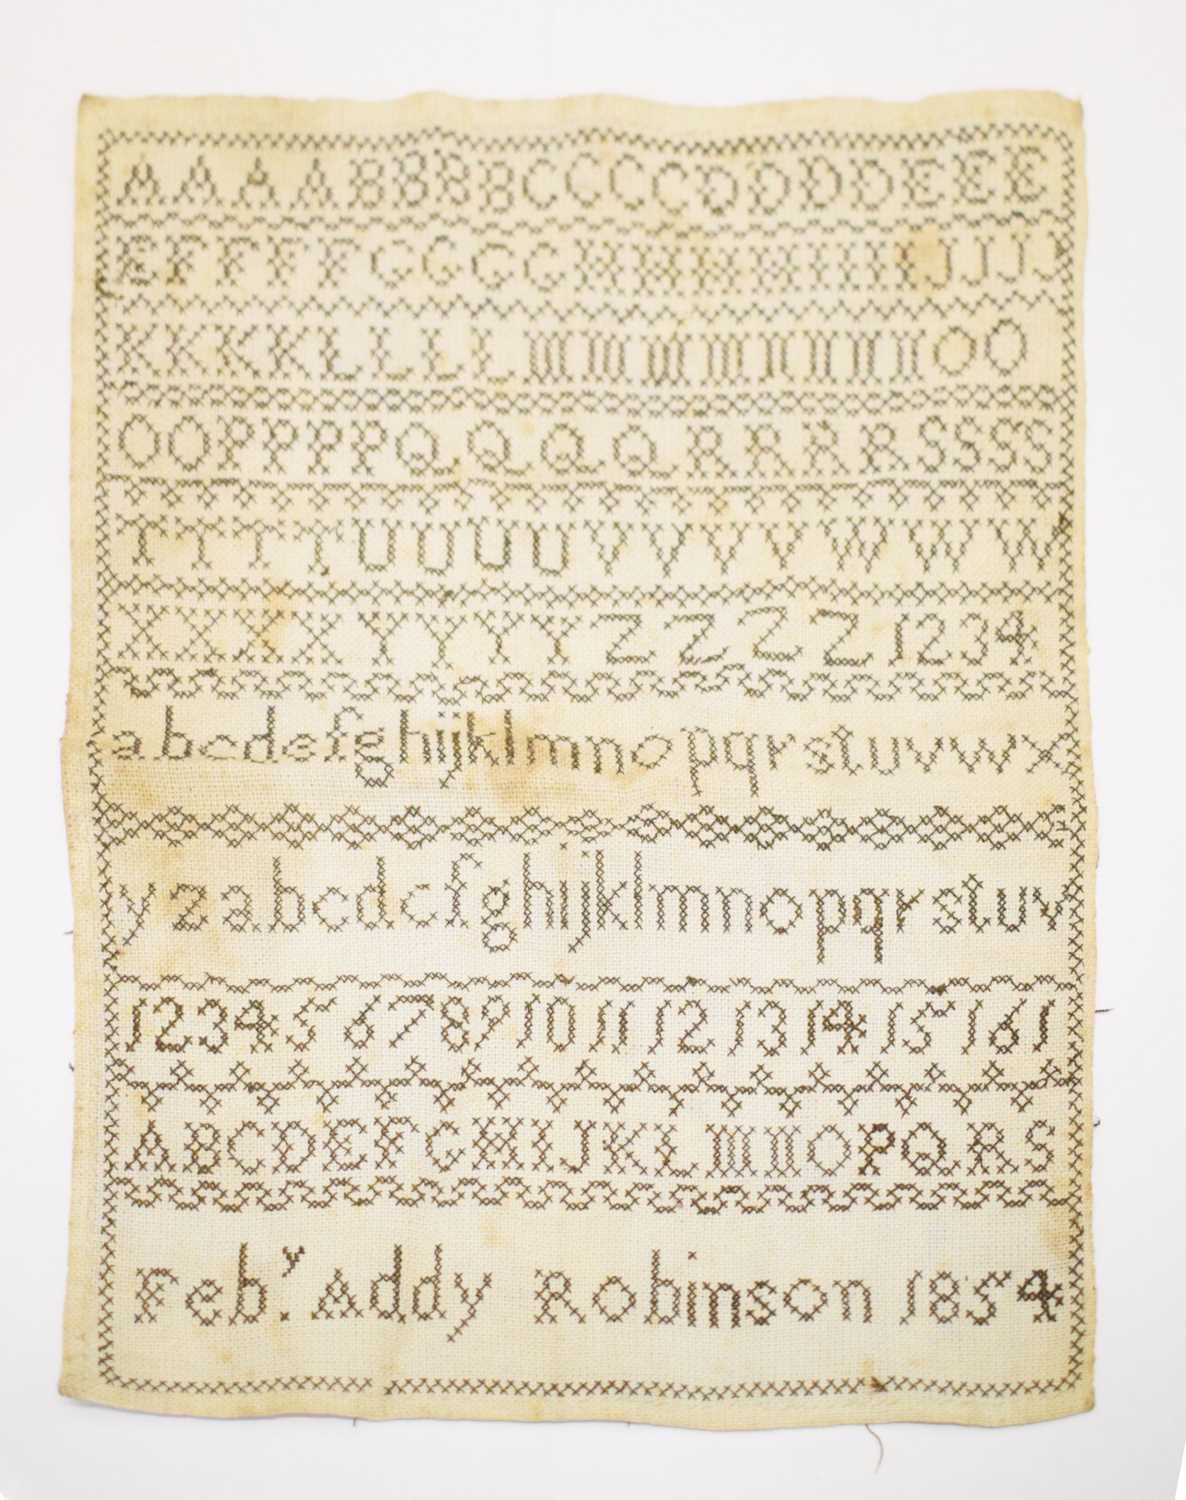 A A A A B B B B C C C C D D D D E E E
E F F F F G G G G H H H H I I I I J J J J
K K K K L L L L M M M M N N N N O O
O O P P P P Q Q Q Q R R R R S S S S
T T T T U U U U V V V V W W W
X X X X Y Y Y Y Z Z Z Z 1 2 3 4
a b c d e f g h i j k l m n o p q r s t u v w x
y z a b c d e f g h i j k l m n o p q r s t u v
1 2 3 4 5 6 7 8 9 10 11 12 13 14 15 16 1
A B C D E F G H I J K L M N O P Q R S
Feb.y Addy Robinson 1854